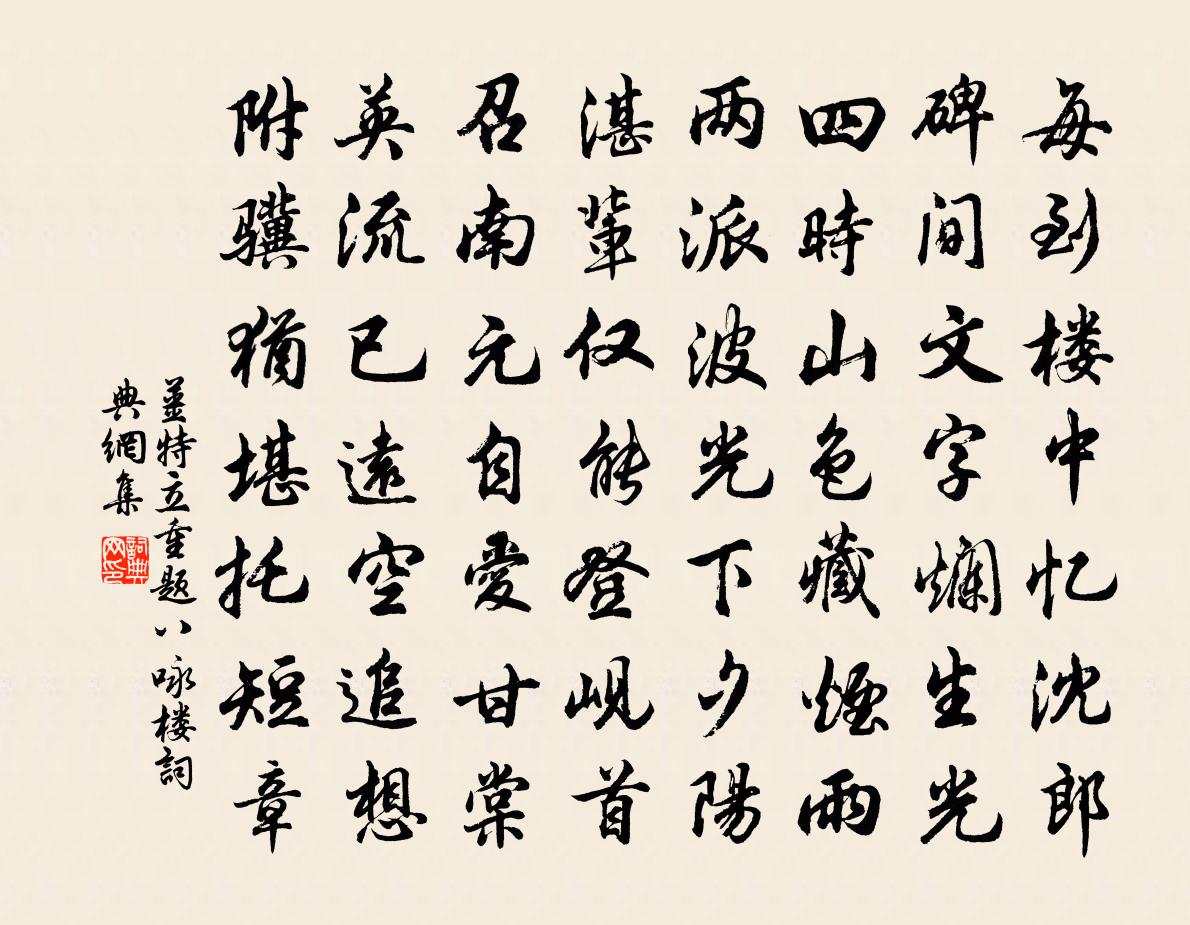 每到楼中忆沈郎
碑间文字烂生光
四時山色藏煙雨
两派波光下夕陽
湛輩仅能登岘首
召南元自愛甘棠
英流已遠空追想
附骥猶堪托短章
姜特立重题八咏楼詞
典網集
詞典网印